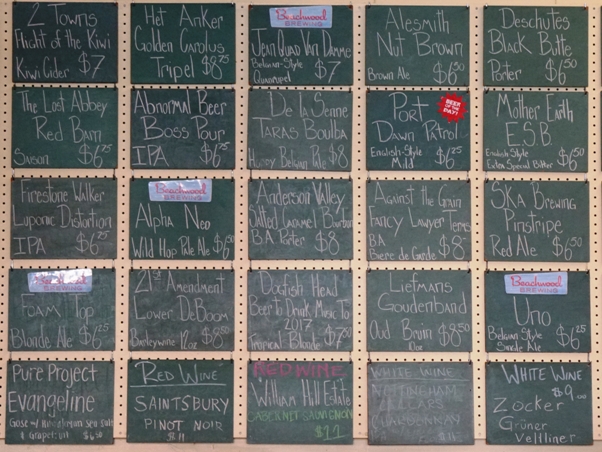 2 Towns
Flight of the Kiwi
Kiwi Cider $7
Het Anker
Golden Carolus
Tripel $8.25
Beachwood
BREWING
Jean Quad Van Damme
Belgian-Style
Quadrupel $7
Alesmith
Nut Brown
Brown Ale $6.50
Deschutes
Black Butte
Porter $6.50
The Lost Abbey
Red Barn
Saison $6.75
Abnormal Beer
Boss Pour
IPA $6.75
De la Senne
Taras Boulba
Hoppy Belgian Pale $8
Port
BEER OF THE DAY!
Dawn Patrol
English-Style
Mild $6.25
Mother Earth
E.S.B
English Style
Extra Special Bitter $6.50
Firestone Walker
Luponic Distortion
IPA $6.25
Beachwood
BREWING
Alpha Neo
Wild Hop Pale Ale $6.50
Anderson Valley
Salted Caramel Bourbon
B.A. Porter $8
Against the Grain
Fancy Lawyer Terms
BA
Biere de Garde $8
Ska Brewing
Pinstripe
Red Ale $6.50
Beachwood
BREWING
Foam Top
Blonde Ale $6.25
21st Amendment
Lower DeBoom
Barleywine 12oz $8.50
Dogfish Head
Beer To Drink Music To
2017
Tropical Blonde $7.50
Liefmans
Goudenband
Oud Bruin $8.50
11oz
Beachwood
BREWING
Uno
Belgian Style
Single Ale $6.25
Pure Project
Evangeline
Gose w/ Hawaiian sea salt
& Grapefruit $6.50
RED WINE
SAINTSBURY
PINOT NOIR
$11
RED WINE
William Hill Estate
CABERNET SAUVIGNON
$11
WHITE WINE
CHARDONNAY
$11
WHITE WINE
$9.00
Zocker
Grüner
Veltliner